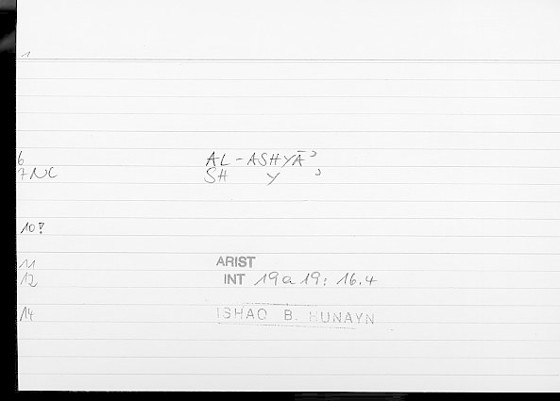 1
6 AL-ASHYĀʾ
7NC SH Y ʾ
10?
11 ARIST
12 INT 19a19: 16.4
14 ISHAQ B. HUNAYN